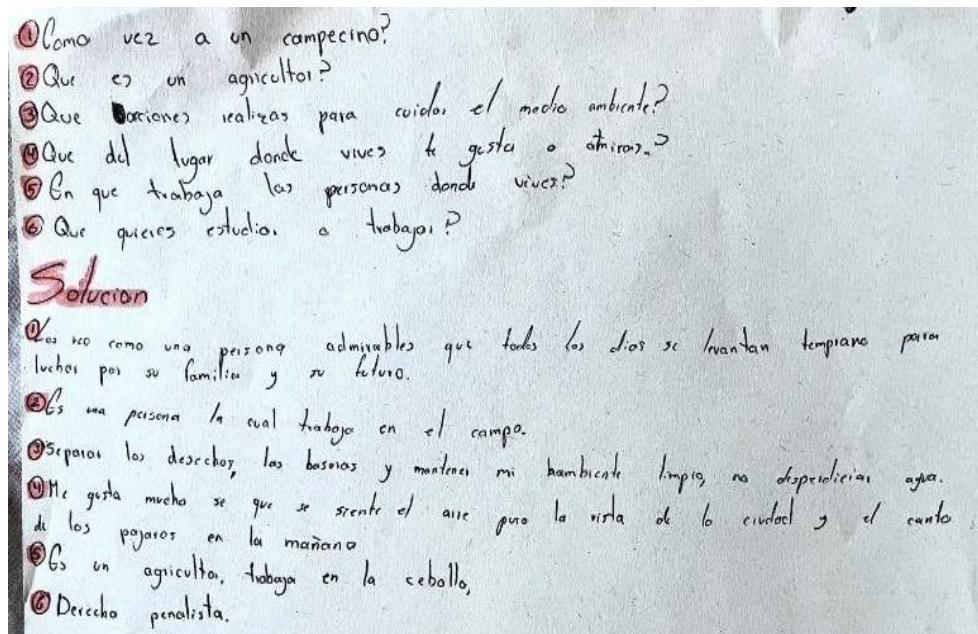 ① Como vez a un campecino?
② Que es un agricultor?
③ Que acciones realizas para cuidar el medio ambiente?
④ Que del lugar donde vives te gusta o atmiras.?
⑤ En que trabaja las personas donde vives?
⑥ Que quieres estudiar o trabajar?
Solucion
① Los veo como una persona admirables que todos los dias se levantan temprano para
luchar por su familia y su futuro.
② Es una persona la cual trabaja en el campo.
③ Separar los desechos, las basuras y mantener mi hambiente limpio, no desperdiciar agua.
④ Me gusta mucho se que se siente el aire puro la vista de la ciudad y el canto
de los pajaros en la mañana
⑤ Es un agricultor, trabaja en la cebolla,
⑥ Derecho penalista.